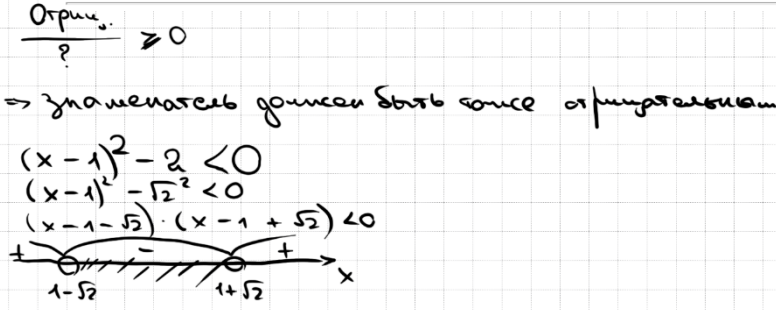 Отриц.
? ⩾ 0
=> знаменатель должен быть тоже отрицательным
(x - 1)² - 2 < 0
(x - 1)² - √2² < 0
(x - 1 - √2) · (x - 1 + √2) < 0
+ - +
1-√2 1+√2 x